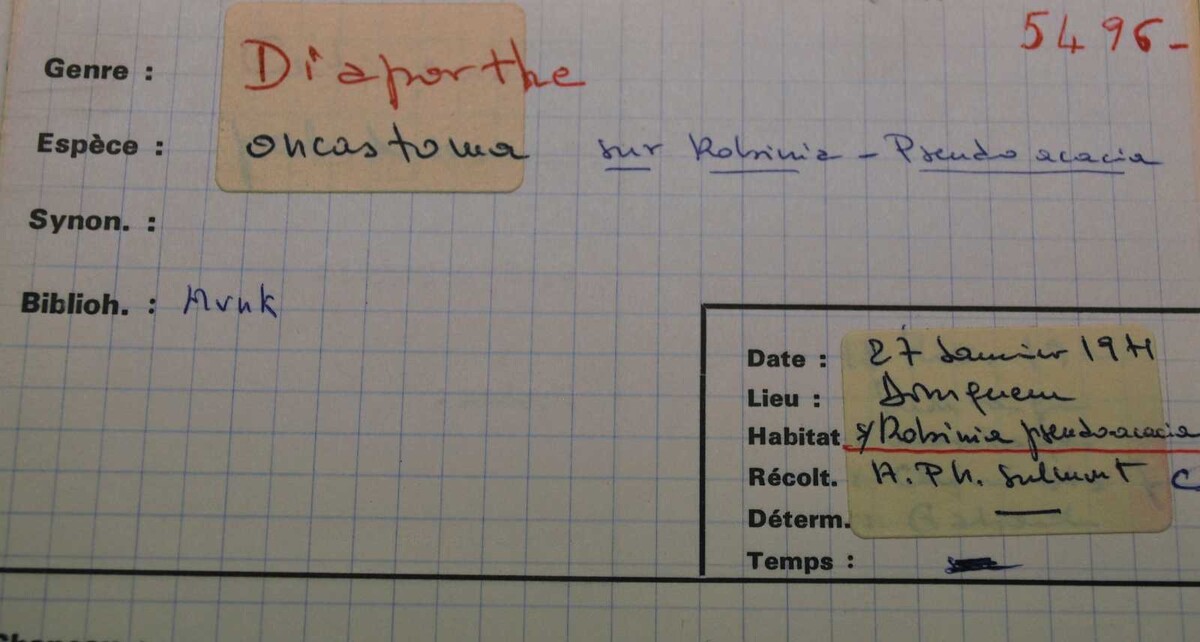 5496-
Genre : Diaporthe
Espèce : oncostoma sur Robinia - Pseudo acacia
Synon. :
Biblioh. : Munk
Date : 27 Janvier 1971
Lieu :
Habitat s/ Robinia pseudo-acacia
Récolt. A. Ph. Sulmont C
Déterm. —
Temps :